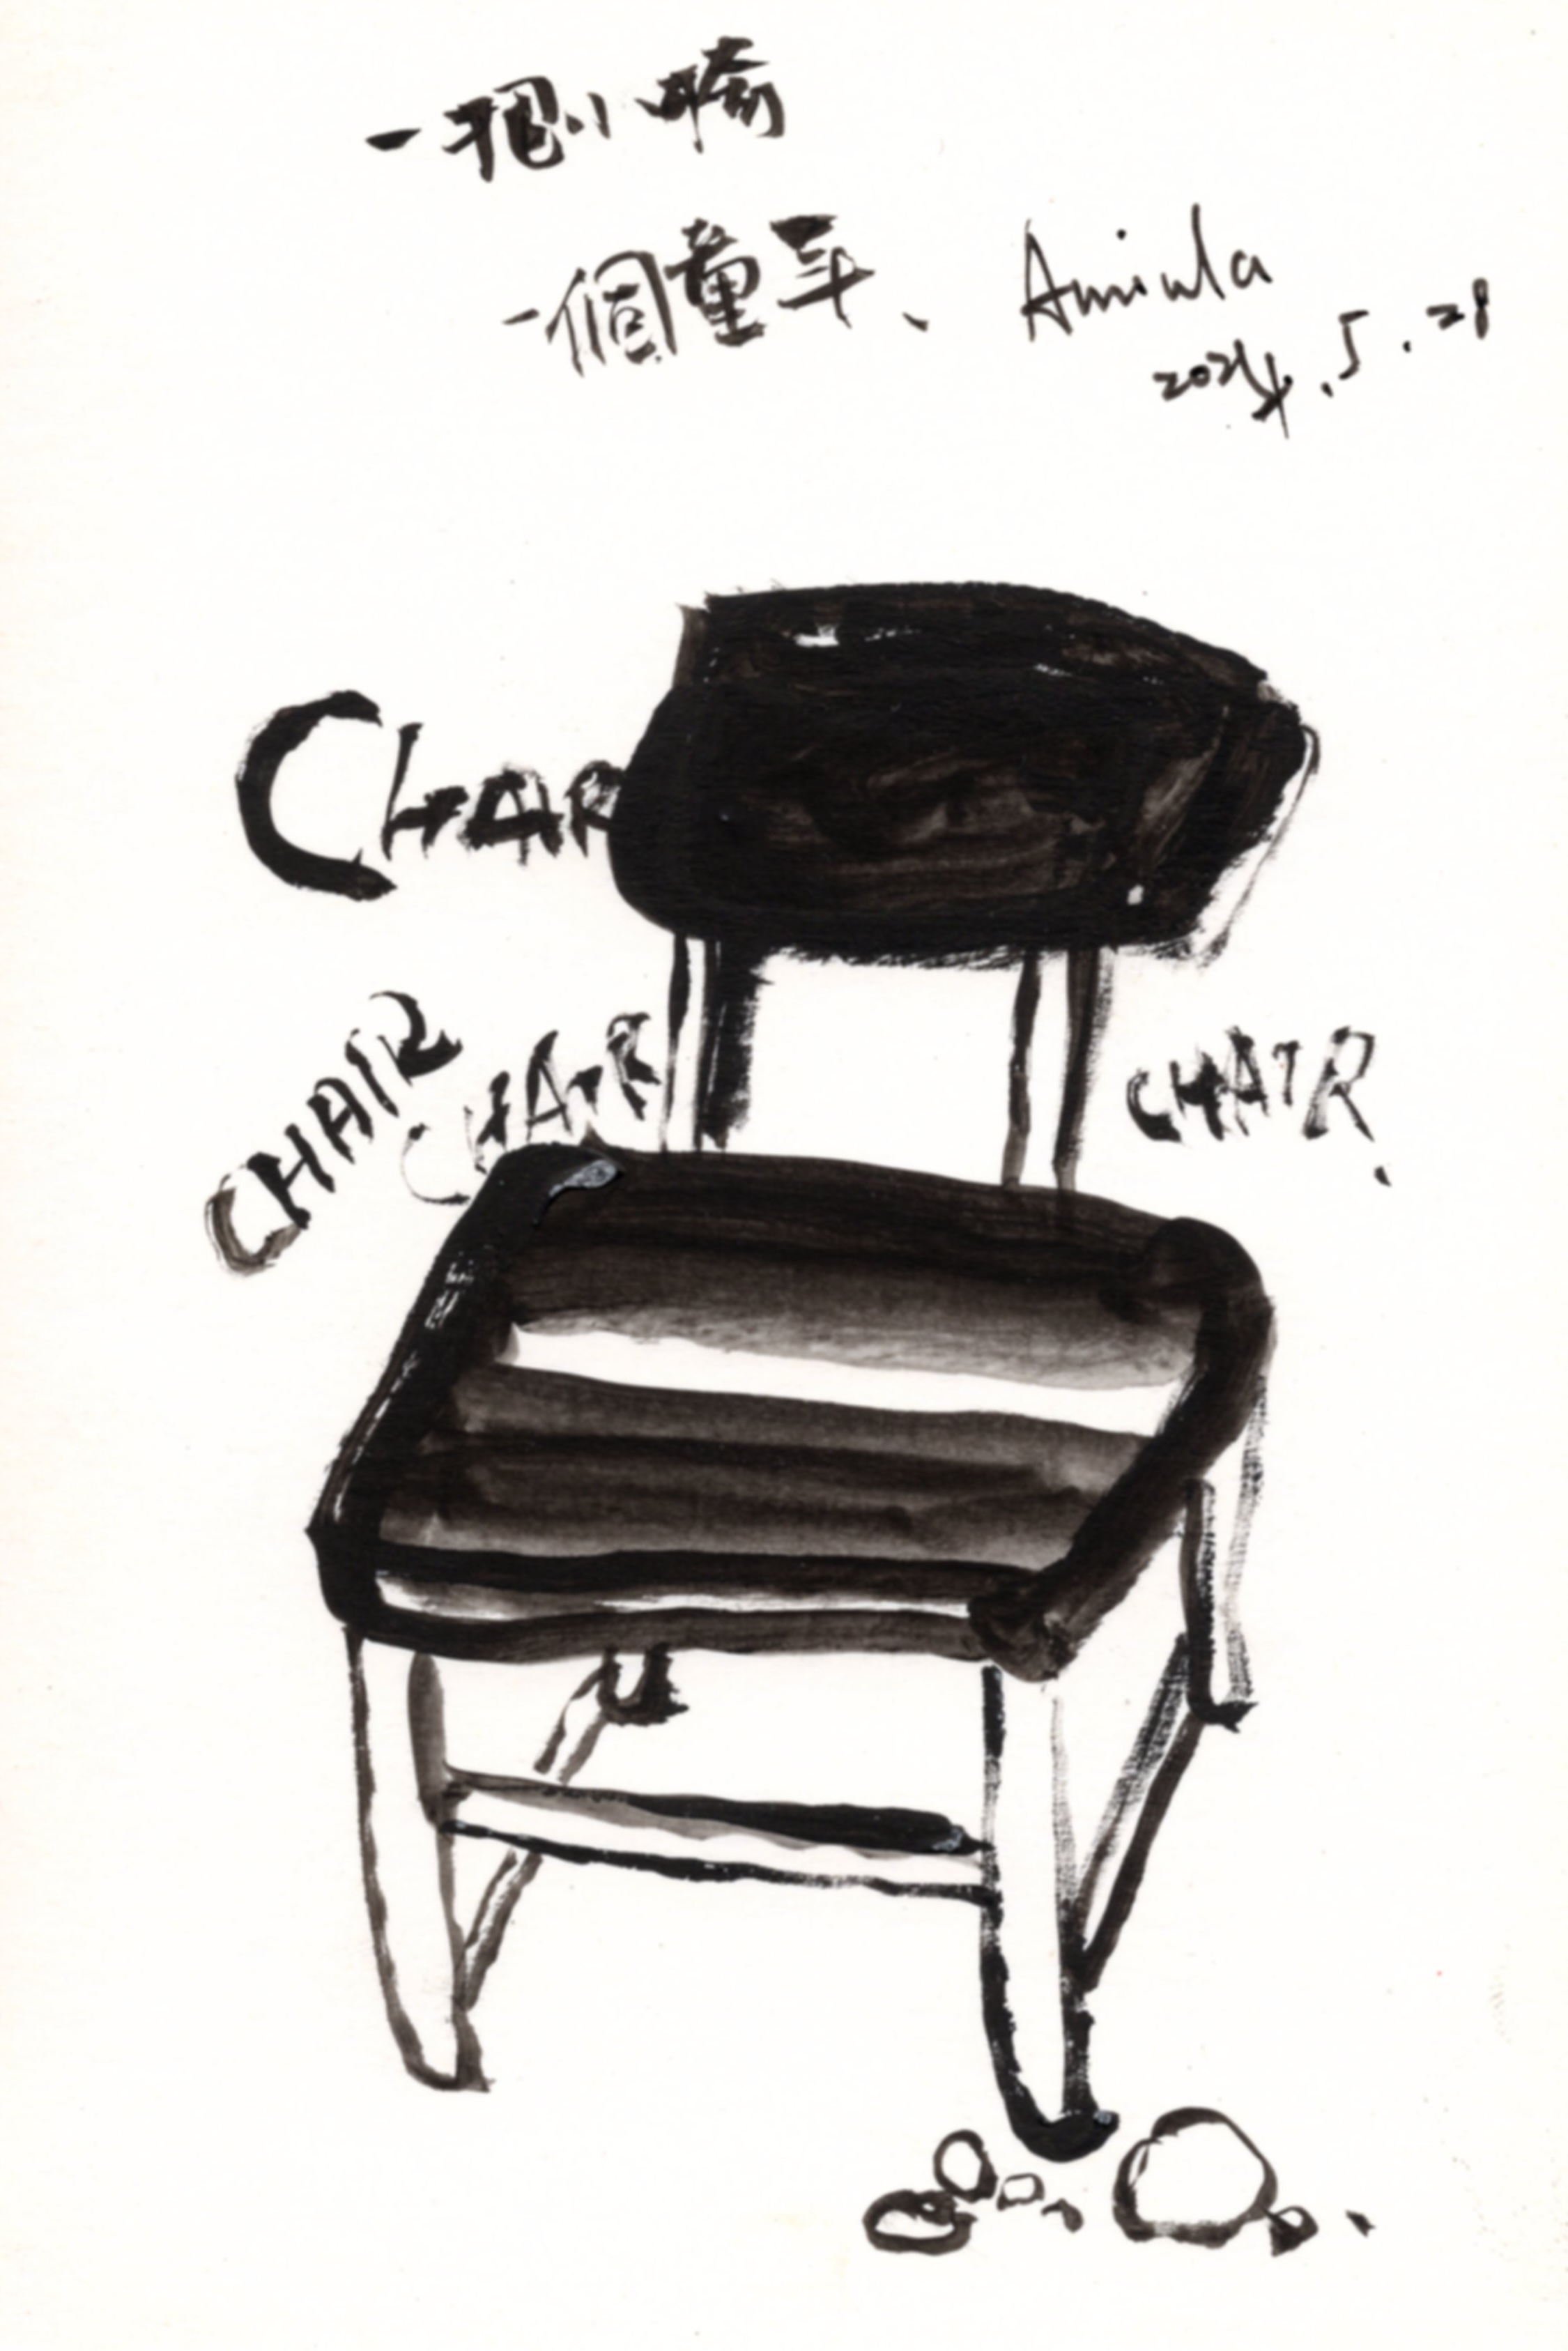 一把小椅
一個童年、
2024.5.28
CHAIR
CHAIR
CHAIR
CHAIR.